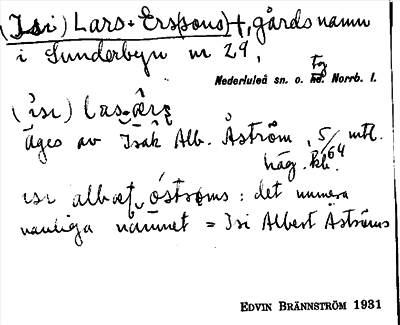 (Isi) Lars-Ersson(s) +, gårdsnamn
i Sunderbyn nr 29,
Nederluleå sn. o. tg Norrb. l.
(isi) las-
äges av Isak Alb. Åström, 5/64 mtl.
häg. kbl.
isi östroms : det numera
vanliga namnet = Isi Albert Åströms
EDVIN BRÄNNSTRÖM 1931